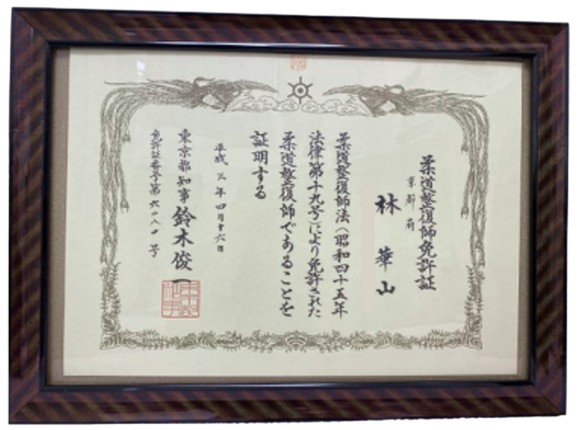 柔道整復師免許証
京都府
林華山
柔道整復師法(昭和四十五年
法律第十九号)により免許された
柔道整復師であることを
証明する
平成三年四月廿六日
東京都知事鈴木俊一
免許証番号第六二八口号